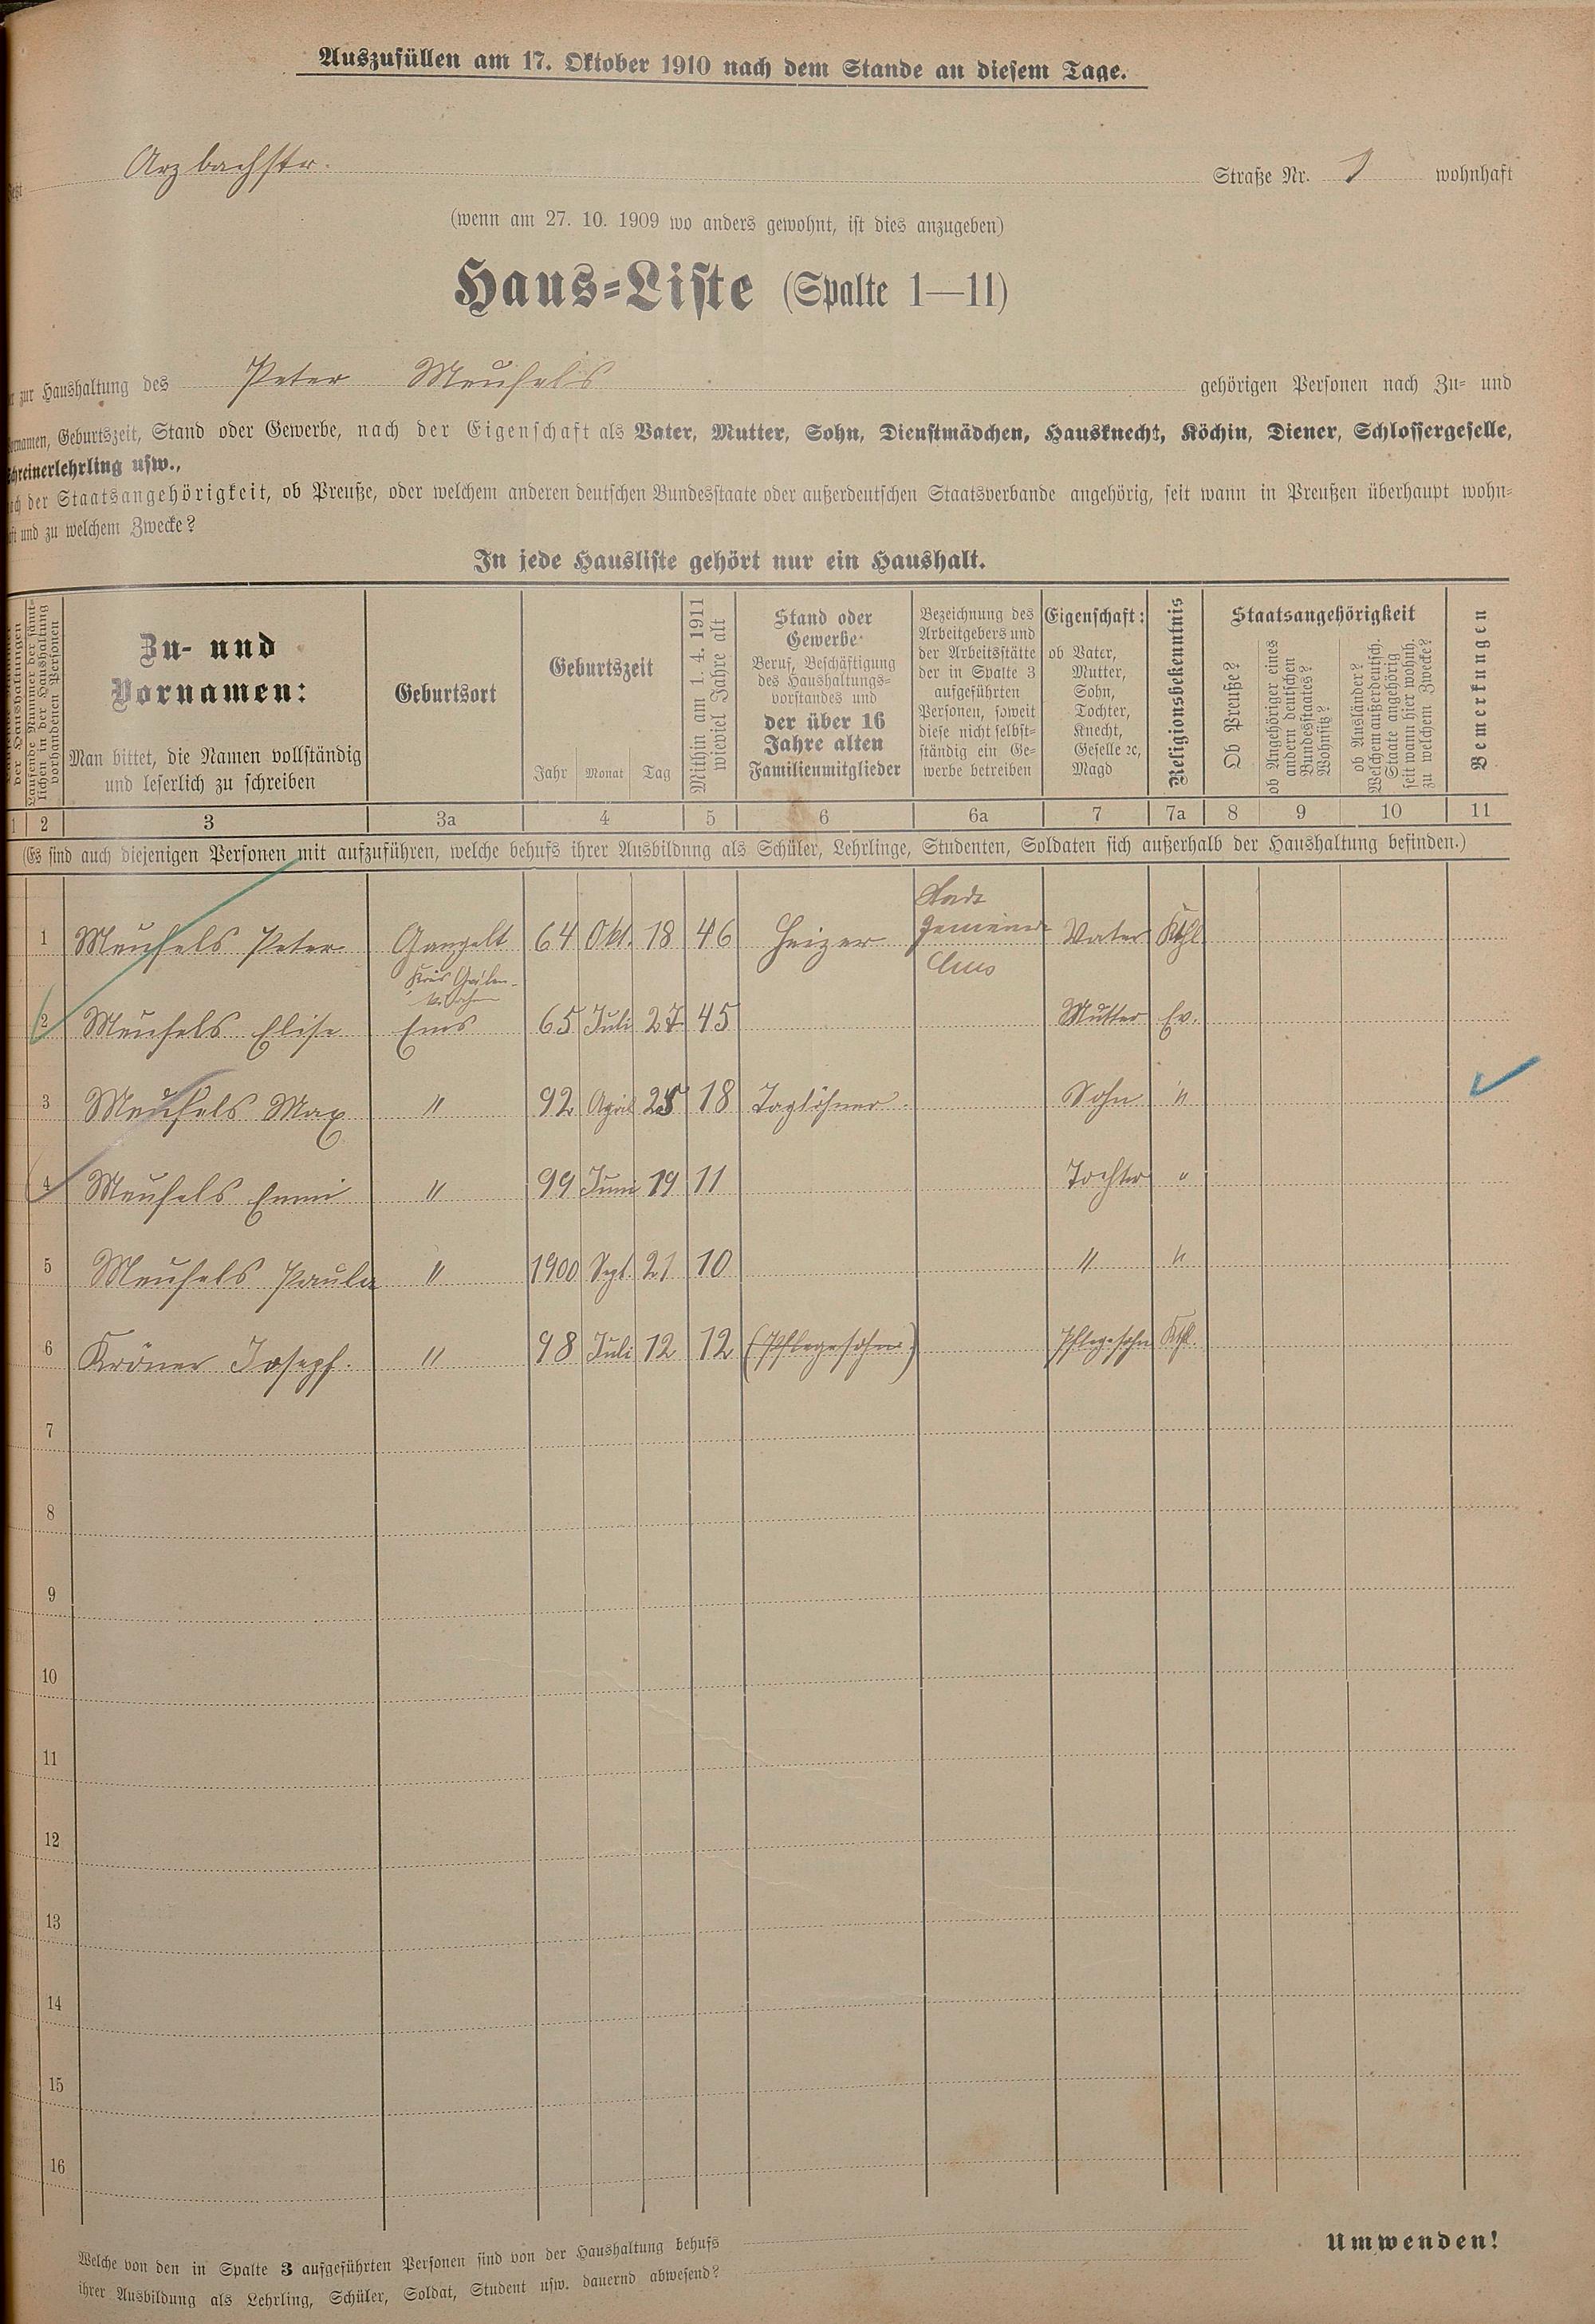 Auszufüllen am 17. Oktober 1910 nach dem Stande an diesem Tage.
Arzbachstr. Straße Nr. 1 wohnhaft
(wenn am 27. 10. 1909 wo anders gewohnt, ist dies anzugeben)
Haus-Liste (Spalte 1—11)
zur Haushaltung des Peter Meufels gehörigen Personen nach Zu- und
Geburtszeit, Stand oder Gewerbe, nach der Eigenschaft als Vater, Mutter, Sohn, Dienstmädchen, Hausknecht, Köchin, Diener, Schlossergeselle,
Schreinerlehrling usw.,
der Staatsangehörigkeit, ob Preuße, oder welchem anderen deutschen Bundesstaate oder außerdeutschen Staatsverbande angehörig, seit wann in Preußen überhaupt wohn-
und zu welchem Zwecke?
In jede Hausliste gehört nur ein Haushalt.
der Haushaltungen
Laufende Nummer der sämt-
lichen in der Haushaltung
vorhandenen Personen
Zu- und
Vornamen:
Man bittet, die Namen vollständig
und leserlich zu schreiben
Geburtsort
Geburtszeit
Jahr Monat Tag
Mithin am 1. 4. 1911
wieviel Jahre alt
Stand oder
Gewerbe
Beruf, Beschäftigung
des Haushaltungs-
vorstandes und
der über 16
Jahre alten
Familienmitglieder
Bezeichnung des
Arbeitgebers und
der Arbeitsstätte
der in Spalte 3
aufgeführten
Personen, soweit
diese nicht selbst-
ständig ein Ge-
werbe betreiben
Eigenschaft:
ob Vater,
Mutter,
Sohn,
Tochter,
Knecht,
Geselle ꝛc,
Magd
Religionsbekenntnis
Staatsangehörigkeit
Ob Preuße?
ob Angehöriger eines
andern deutschen
Bundesstaates?
Wohnsitz?
ob Ausländer?
Welchem außerdeutsch.
Staate angehörig
seit wann hier wohnh.
zu welchem Zwecke?
Bemerkungen
1 2 3 3a 4 5 6 6a 7 7a 8 9 10 11
(Es sind auch diejenigen Personen mit aufzuführen, welche behufs ihrer Ausbildung als Schüler, Lehrlinge, Studenten, Soldaten sich außerhalb der Haushaltung befinden.)
1 Meufels Peter Gangelt 64 Okt. 18 46 Heizer Stadt Gemeinde Ems Vater Kthl
Kreis
2 Meufels Elise Ems 65 Juli 27 45 Mutter Ev.
3 Meufels Max " 92 April 25 18 Taglöhner Sohn "
4 Meufels Emmi " 99 Juni 19 11 Tochter "
5 Meufels Paula " 1900 Sept. 21 10 " "
6 Kröner Joseph. " 98 Juli 12 12 (Pflegesohn) Pflegesohn Kthl.
7
8
9
10
11
12
13
14
15
16
Welche von den in Spalte 3 aufgeführten Personen sind von der Haushaltung behufs
ihrer Ausbildung als Lehrling, Schüler, Soldat, Student usw. dauernd abwesend?
Umwenden!